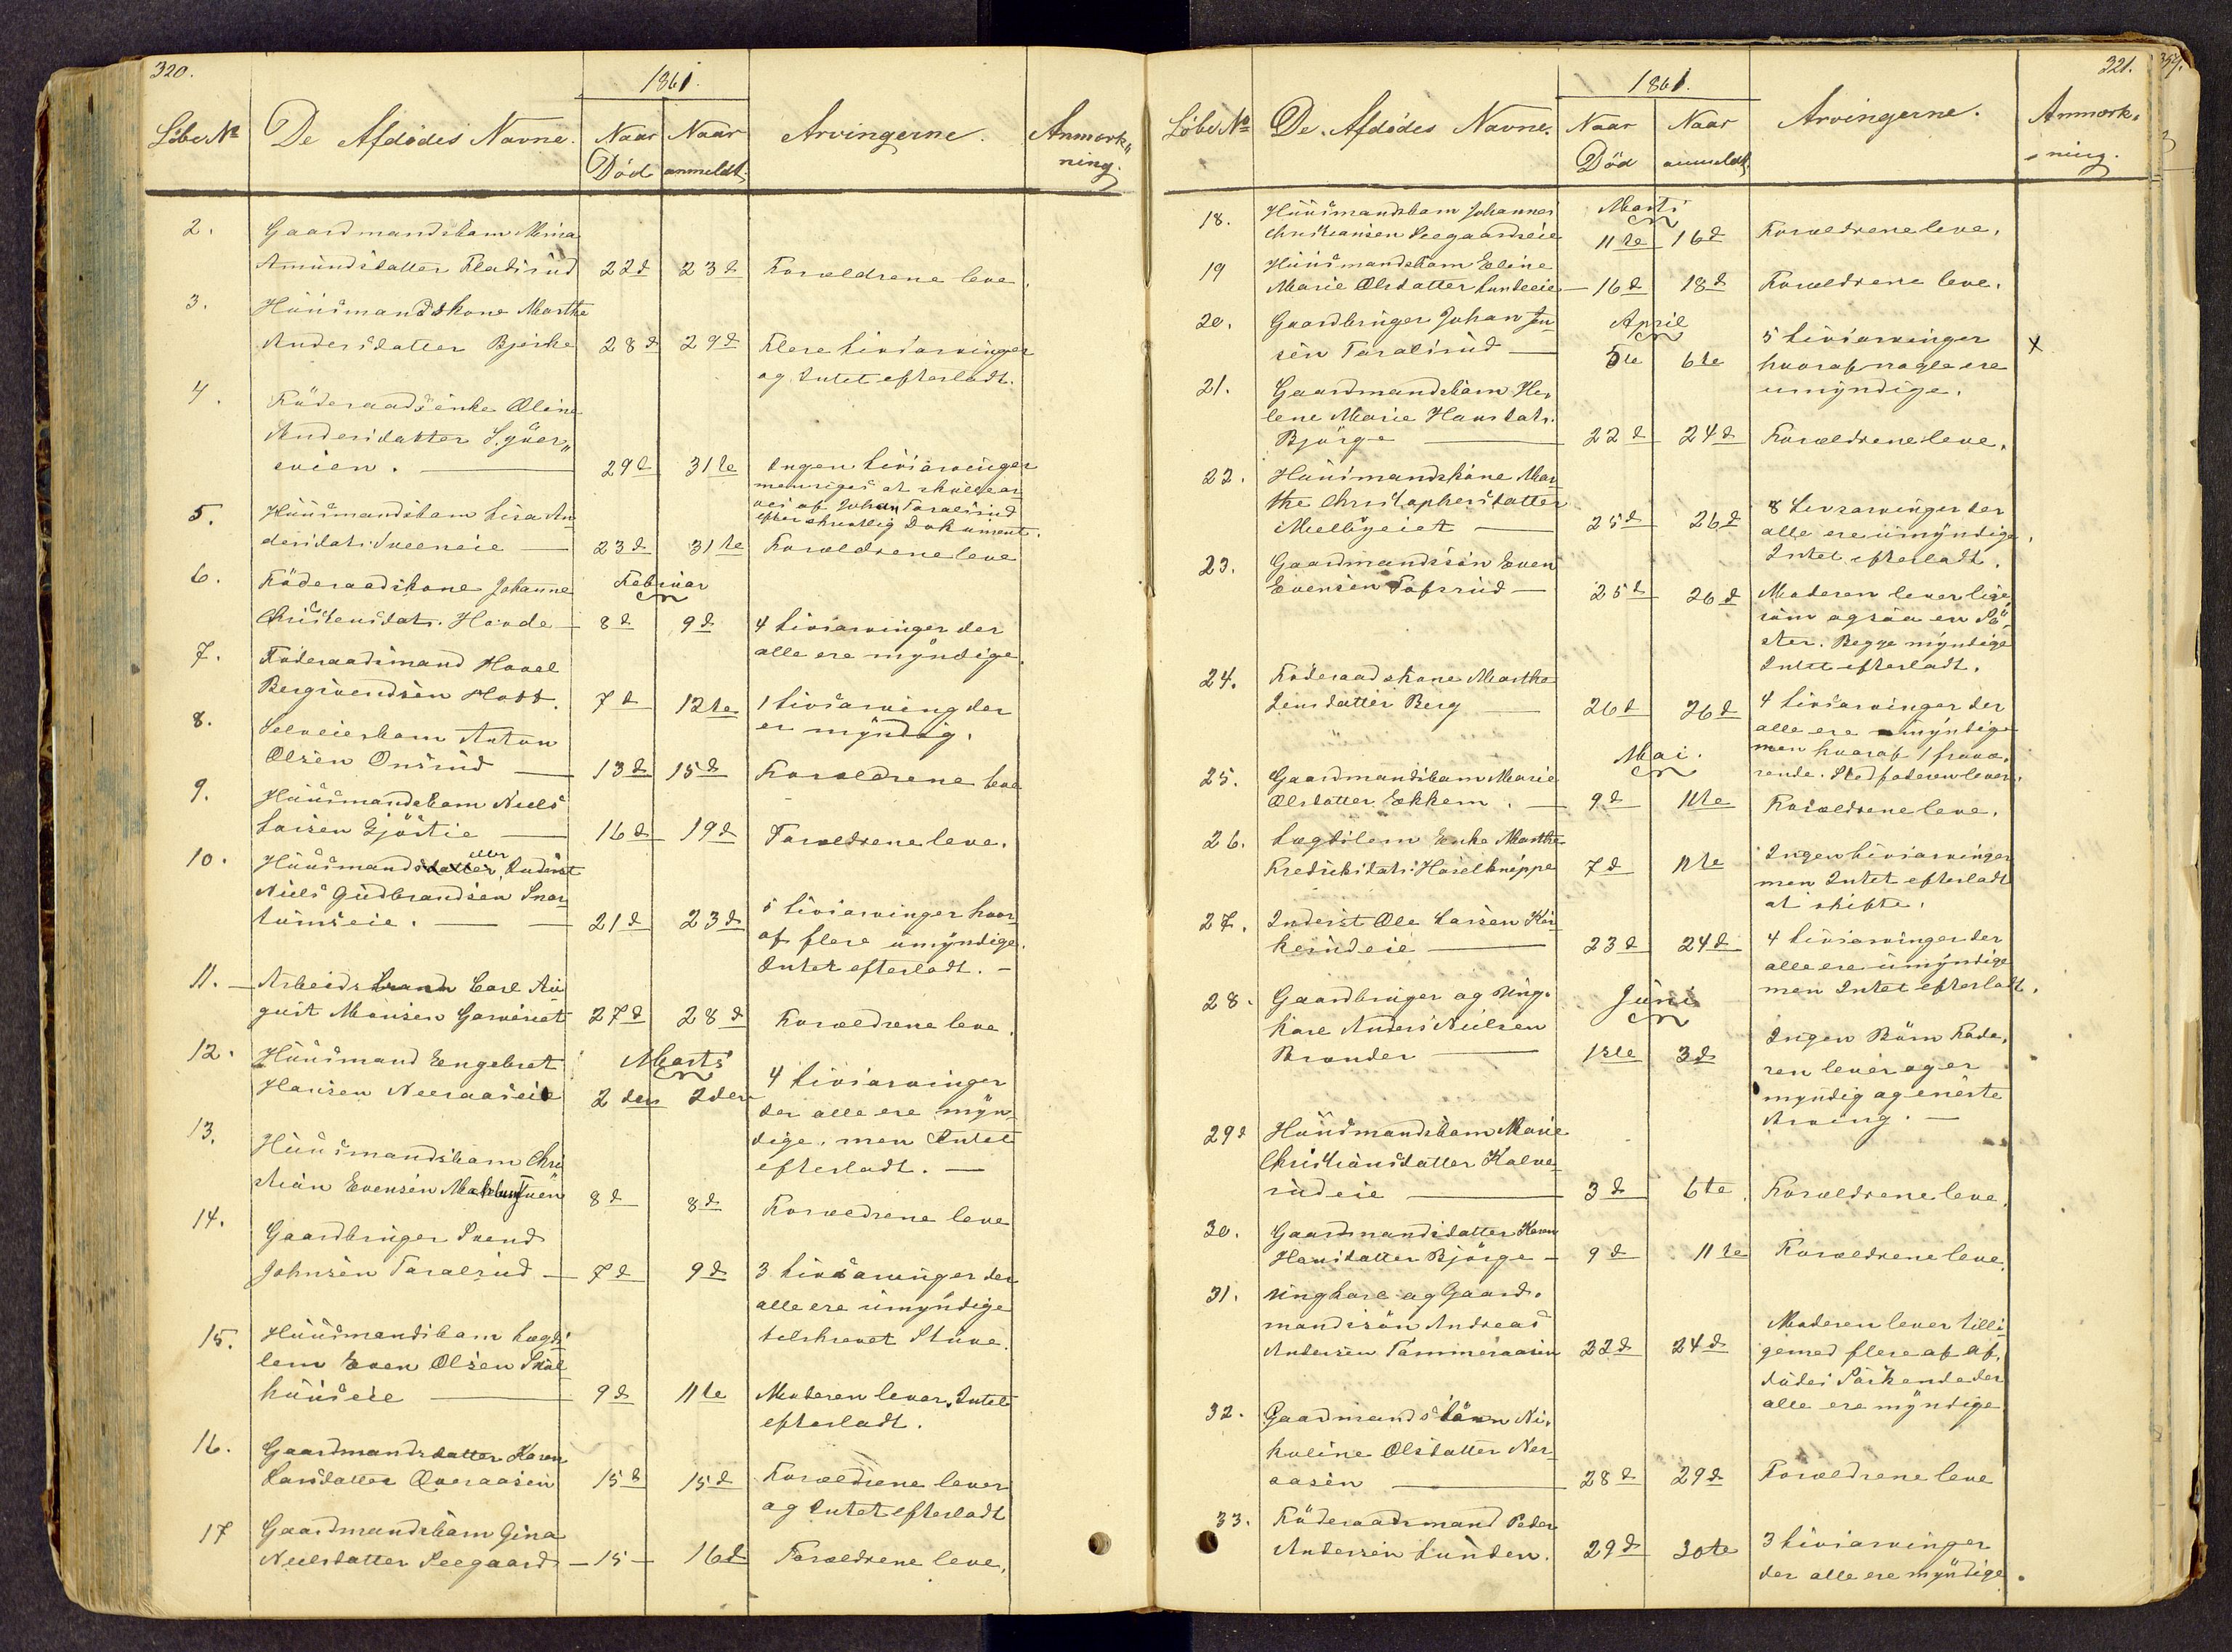 320.
1861.
Löbe No
De Afdödes Navne.
Naar Död
Naar anmeldt.
Arvingerne.
Anmærk„
ning.
2.
Gaardmandsbarn Mina
Amundsdatter Fladsrud 22d 23d Forældrene leve.
3.
Huusmandskone Marthe
Andersdatter Bjerke 28d 29d Flere Livsarvinger
og Intet efterladt.
4.
Föderaadsenke Oline
Andersdatter
eien. 29d 31te Ingen Livsarvinger
men siges at skulle ar
ves af Johan Taralsrud
efter skriftlig Dokument.
5.
Huusmandsbarn Lisa An
dersdatr. Sveeneie 23d 31te Forældrene leve
6.
Föderaadskone Johanne
Februar
Christensdatr. Hovde 8d 9d 4 Livsarvinger der
alle ere myndige.
7.
Föderaadsmand Hovel
Bergsvendsen Hott. 7d 12te 1 Livsarving der
er myndig.
8.
Selveierbarn Anton
Olsen Onsrud 13d 15d Forældrene leve
9.
Huusmandsbarn Niels
Larsen Gjöstie 16d 19d Forældrene leve.
10.
Huusmand eller Inderst
Niels Gudbrandsen Snar
tumseie. 21d 23d 5 Livsarvinger hvor
af flere umyndige.
Intet efterladt.
11.
Arbeidsbarn Carl Au
gust Monsen Garveriet 27d 28d Forældrene leve.
12.
Huusmand Engebret
Marts
Hansen Neeraaseie 2den 2den 4 Livsarvinger
der alle ere myn
dige, men Intet
efterladt.
13.
Huusmandsbarn Chri
stian Evensen 8d 8d Forældrene leve
14.
Gaardbruger Svend
Johnsen Taralsrud 7d 9d 3 Livsarvinger der
alle ere umyndige
tilskrevet Stuve.
15.
Huusmandsbarn Lægds
lem Even Olsen Skol
huuseie 9d 11te Moderen lever. Intet
efterladt.
16.
Gaardmandsdatter Karen
Larsdatter Overaasen 15d 15d Forældrene lever
og Intet efterladt
17
Gaardmandsbarn Gina
Nielsdatter Seegaard 15 16d Forældrene leve.
321.
1861.
Löbe No
De Afdödes Navne.
Naar Död
Naar anmeldt
Arvingerne.
Anmærk„
ning.
18.
Huusmandsbarn Johannes
Marts
Christiansen Seegaardseie 11te 16d Forældrene leve.
19
Huusmandsbarn Eline
Marie Olsdatter Lundeeie 16d 18d Forældrene leve.
20.
Gaardbruger Johan Jen
April
sen Taralsrud 5te 6te 5 Livsarvinger x
hvoraf nogle ere
umyndige.
21.
Gaardmandsbarn He„
lene Marie Hansdatr.
Björge 22d 24d Forældrene leve.
22.
Huusmandskone Mar
the Christophersdatter
Melbyeiet 25d 26d 8 Livsarvinger der
alle ere umyndige.
Intet efterladt.
23.
Gaardmandssön Even
Evensen Tofsrud 25d 26d Moderen lever lige
som ogsaa en Sö
ster. Begge myndige
Intet efterladt.
24.
Föderaadskone Marthe
Jensdatter Berg 26d 26d 4 Livsarvinger der
alle ere myndige
men hvoraf 1 fravæ„
rende. Stedfaderen lever.
Mai.
25.
Gaardmandsbarn Marie
Olsdatter Ekkern. 9d 11te Forældrene leve.
26.
Lægdslem Enke Marthe
Fredriksdatr. Haselknippe 7d 11te Ingen Livsarvinger
men Intet efterladt
at skifte.
27.
Inderst Ole Larsen Kir
kerudeie 23d 24d 4 Livsarvinger der
alle ere umyndige
men Intet efterladt.
28.
Gaardbruger og Ung„
Juni
karl Anders Nielsen
Brander 1ste 3d Ingen Börn Fade„
ren lever og er
myndig og eneste
Arving.
29d
Huusmandsbarn Marie
Christiansdatter Kalve
rudeie 3d 6te Forældrene leve.
30.
Gaardmandsdatter Karen
Hansdatter Björge 9d 11te Forældrene leve.
31.
Ungkarl og Gaard„
mandssön Andreas
Andersen Tömmeraasen 22d 24d Moderen lever tilli
gemed flere af af„
dödes Söskende der
alle ere myndige
32.
Gaardmandsbarn Ni„
koline Olsdatter Ner
aasen 28d 29d Forældrene leve
33.
Föderaadsmand Peder
Andersen Lunden. 29d 30te 3 Livsarvinger
der alle ere myndige.